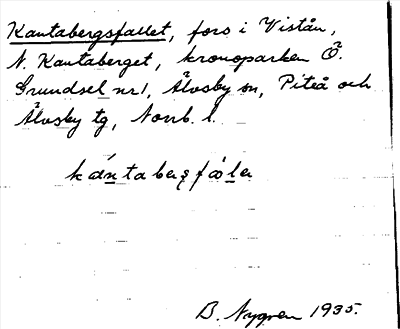 Kantabergsfallet, fors i Vistån,
N. Kantaberget, kronoparken Ö.
Grundsel nr 1, Älvsby sn, Piteå och
Älvsby tg, Norrb. l.
B. Nygren 1935.